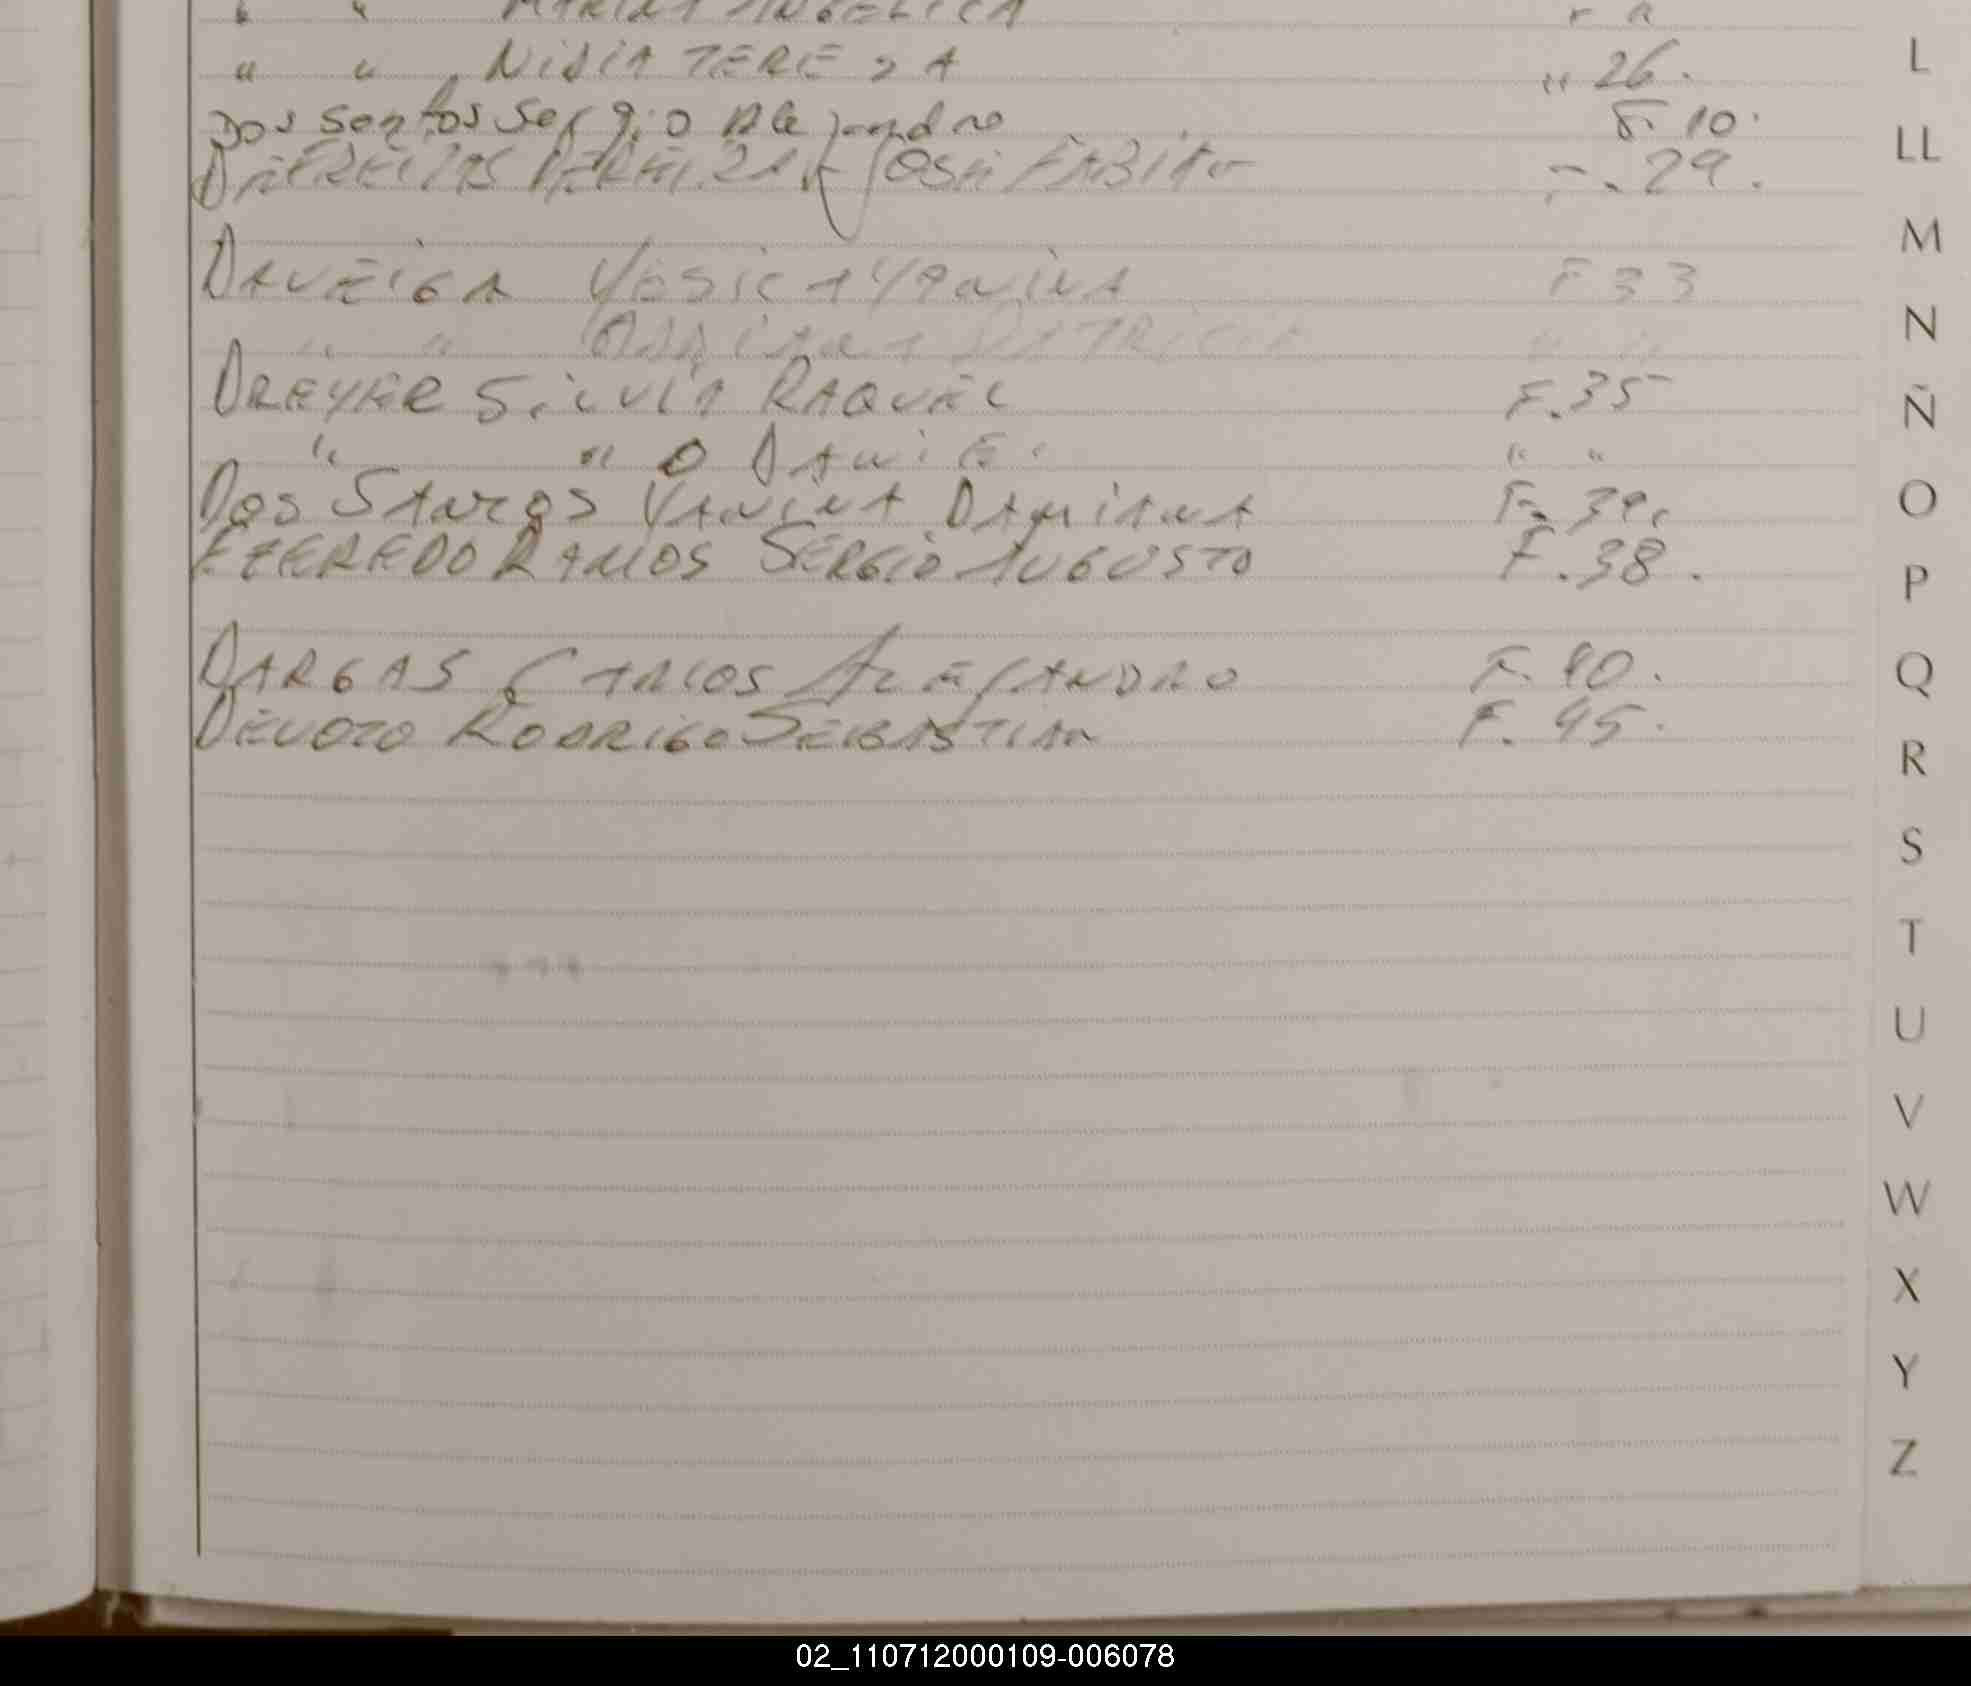 " " MARIA ANGELICA " "
" " NIDIA TERESA " 26.
Dos santos Sergio Alejandro F. 10.
DE FREITAS PEREIRA JOSE FABIAN F. 29.
DAVEIGA YESICA YANINA F 33
" " PATRICIA " "
DREYER SILVIA RAQUEL F. 35
" " O DANIEL " "
DOS SANTOS VANINA DAMIANA F. 39.
EZEREDO RAMOS SERGIO AUGUSTO F. 38.
DARGAS CARLOS ALEJANDRO F. 40.
DEVOTO RODRIGO SEBASTIAN F. 45.
L
LL
M
N
Ñ
O
P
Q
R
S
T
U
V
W
X
Y
Z
02_110712000109-006078